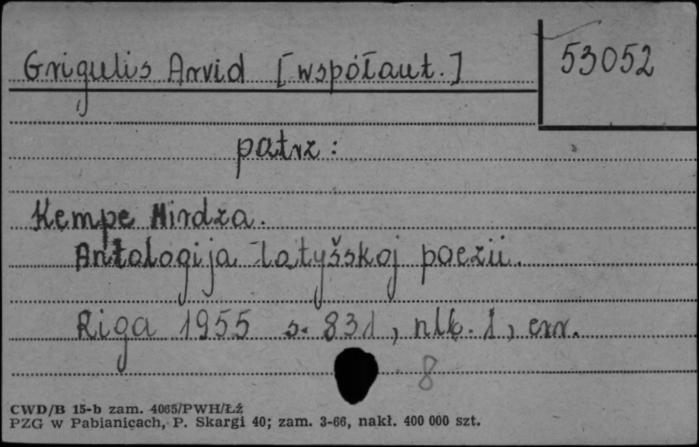 Grigulis Arvid [współaut.]
53052
patrz:
Kempe Mirdza.
Antologija latyšskoj poezii.
Riga 1955 s. 831, nlb. 1, err.
8
CWD/B 15-b zam. 4065/PWH/Łź
PZG w Pabianicach, P. Skargi 40; zam. 3-66, nakł. 400 000 szt.